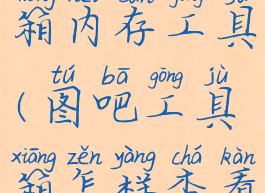 箱内存工具
tú bā gōng jù
(图吧工具
xiāng zěn yàng chá kàn
箱怎样查看